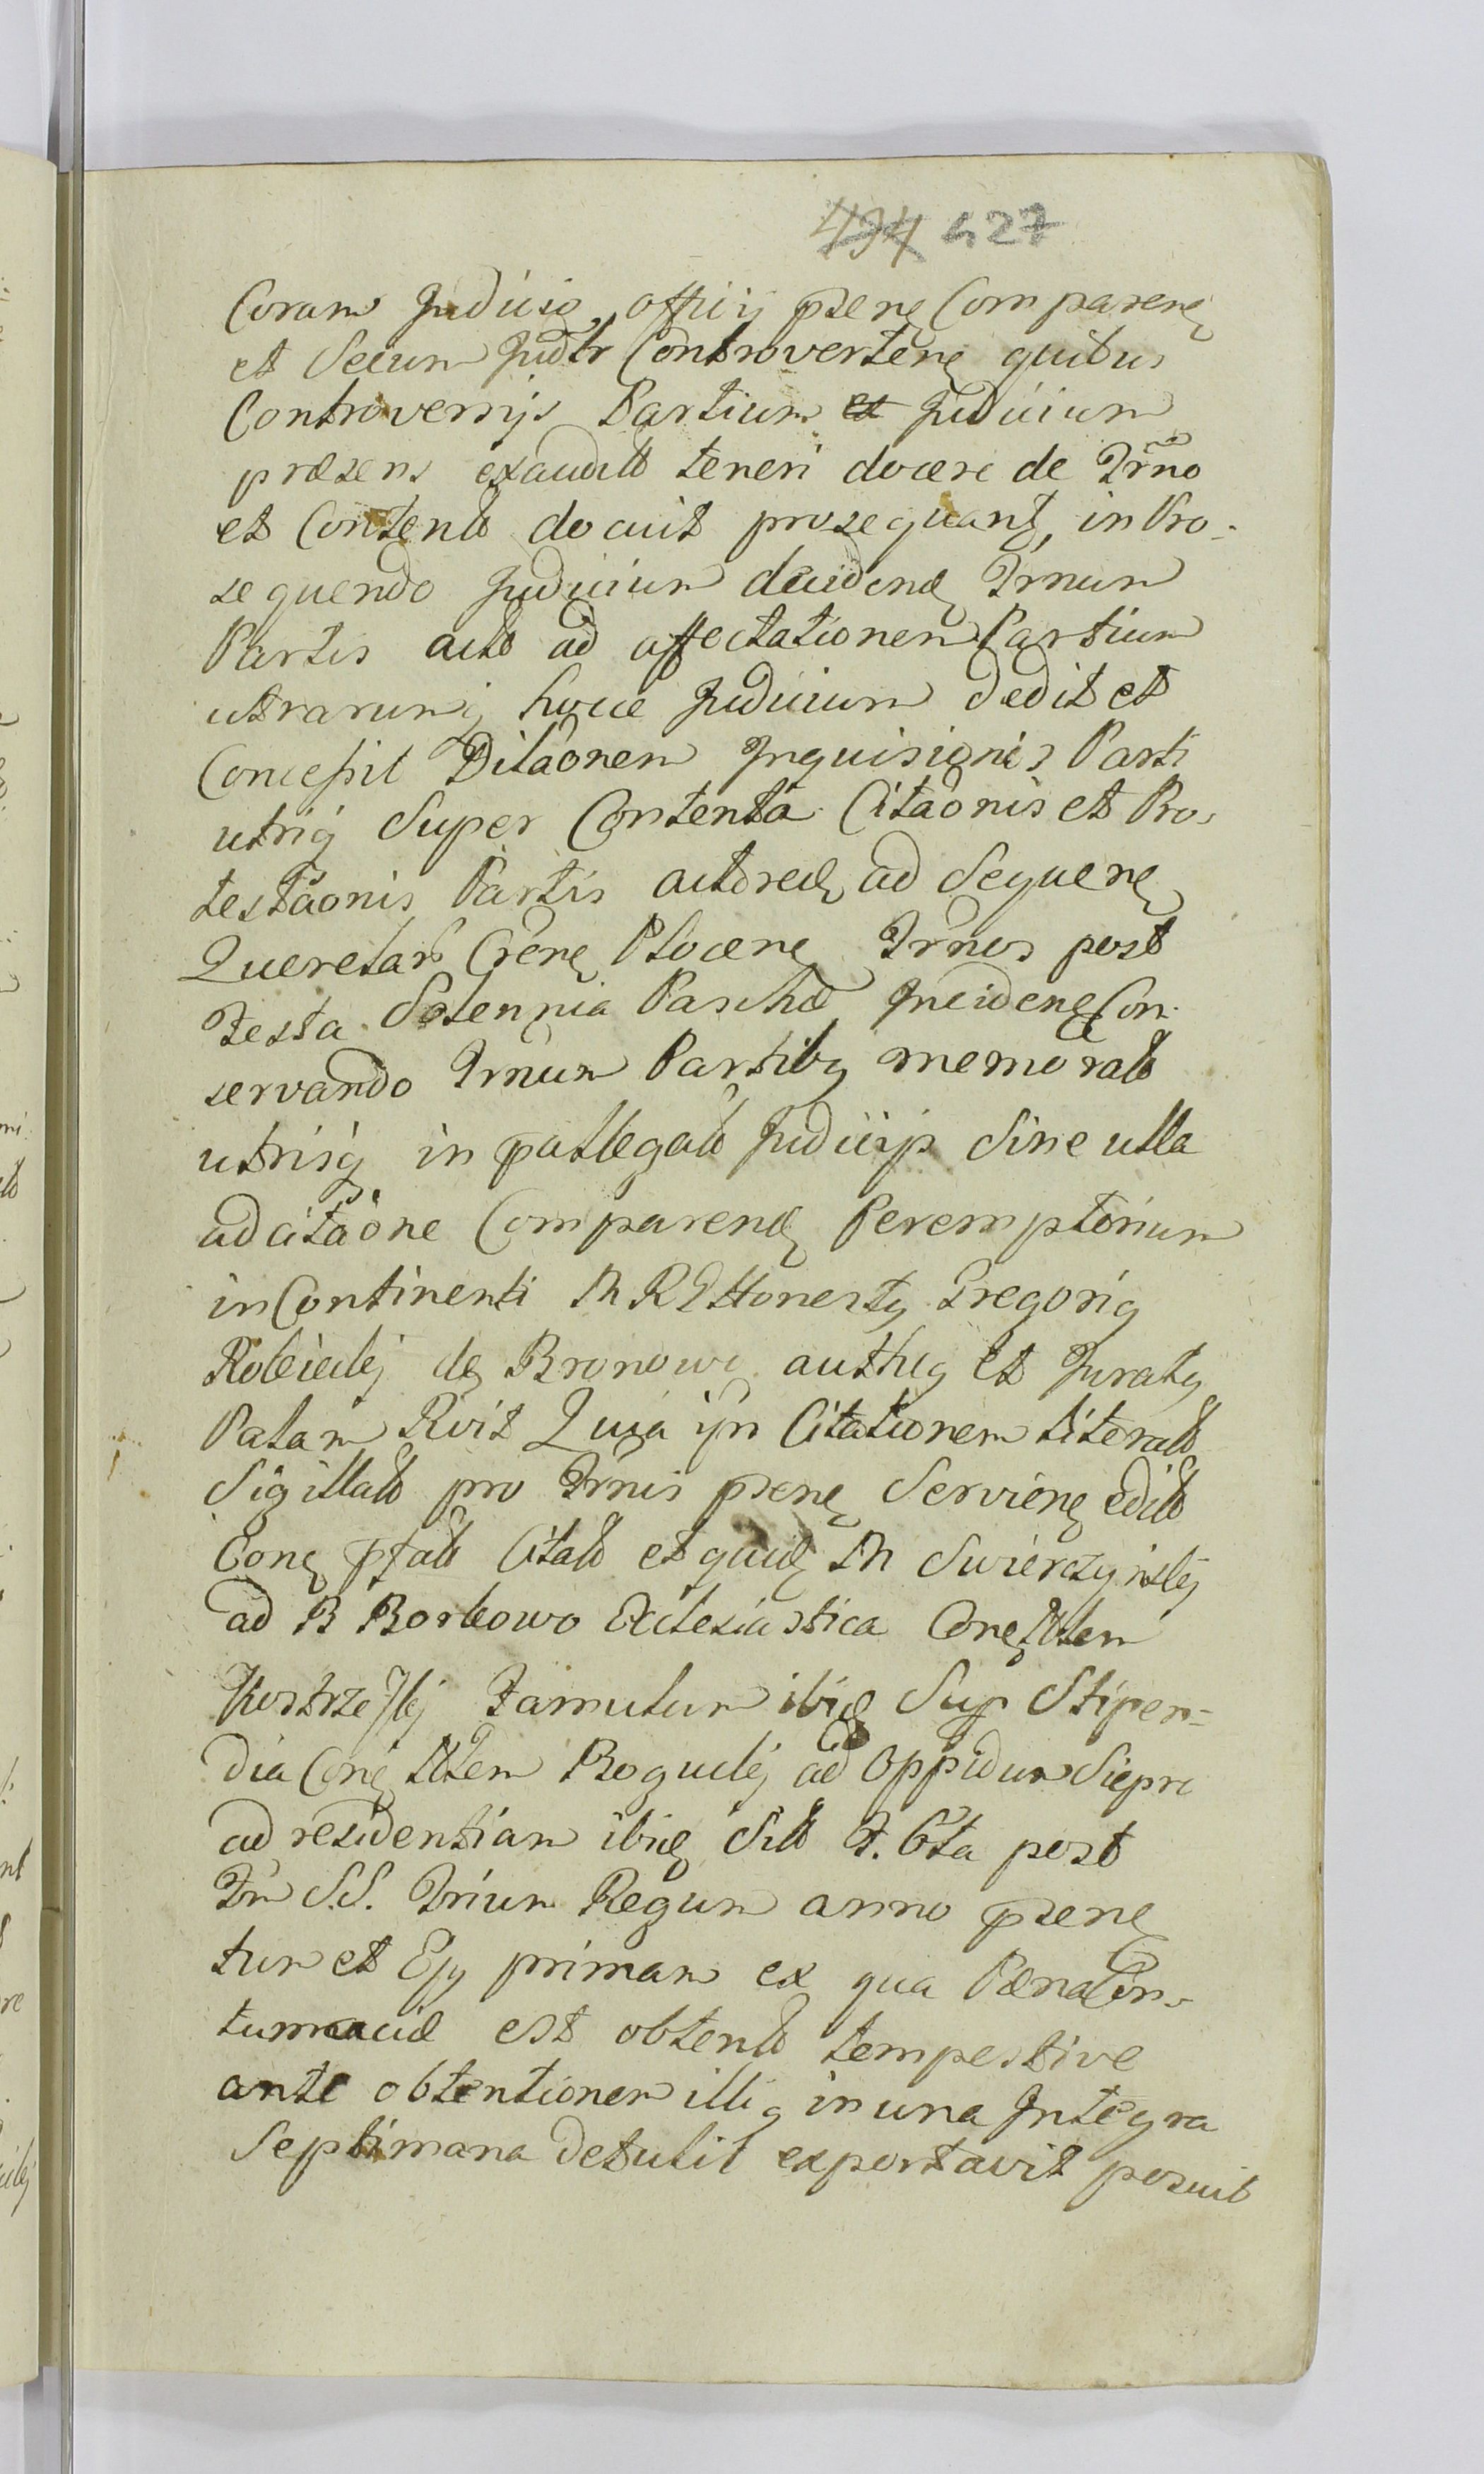 494 427
Coram Judicio officij pſenę Comparenę
et Secum Judłr Controvertenę quibus
Controversijs Partium et Judicium
præsens exaudito teneri docere de Trm̃no
et Contento docuit prosequantę, in Pro-
sequendo Judicium decidendę Trm̃num
Partis acto ad affectationem Partium
utrarumq hocce Judicium dedit et
Concessit Dilãonem Inquisionis Parti
utriq Super Contenta Citãonis et Pro-
testãonis Partis actoreę ad Sequenę
Querelar Crenę Plocenę Trm̃nos post
Festa Solennia Paschæ Incidenę Con-
servando Trm̃num Partibq memorato
utrisq in pallegato Judicijs Sine ulla
adcitãone Comparendę Peremptorium
in Continenti M R Honestq Gregoriq
de Bronowo authcq et Juratq
Palam Rvit Quia ipn Citationem Literato
Sigillato pro Trm̃nis pſenę Servienę edito
Conę pſato Citato et quidę M Swierczynskj
ad B Borkowo Ecclesiastica Conę Item
Famulum ibidę Sup Stipen=
dia Conę Item Boguckj ad Oppidum Sieprc
ad residentiam ibidę Sito F. 6ta post
Fm S.S. Trium Regum anno pſenę
tum et Ejq primam ex qua Pæna Con-
tumaciæ est obtento tempestive
ante obtentionem illiq in una Integra
Septimana detulit exportavit posuit